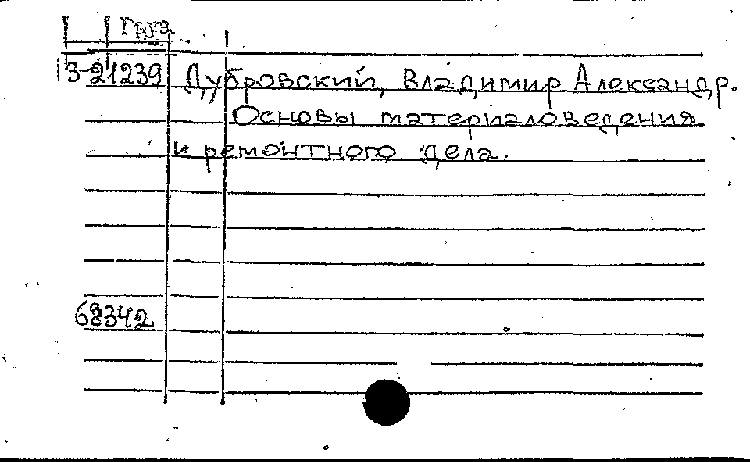 З-21239 Дубровский, Владимир Александр.
Основы материаловедения
и ремонтного дела.
68342